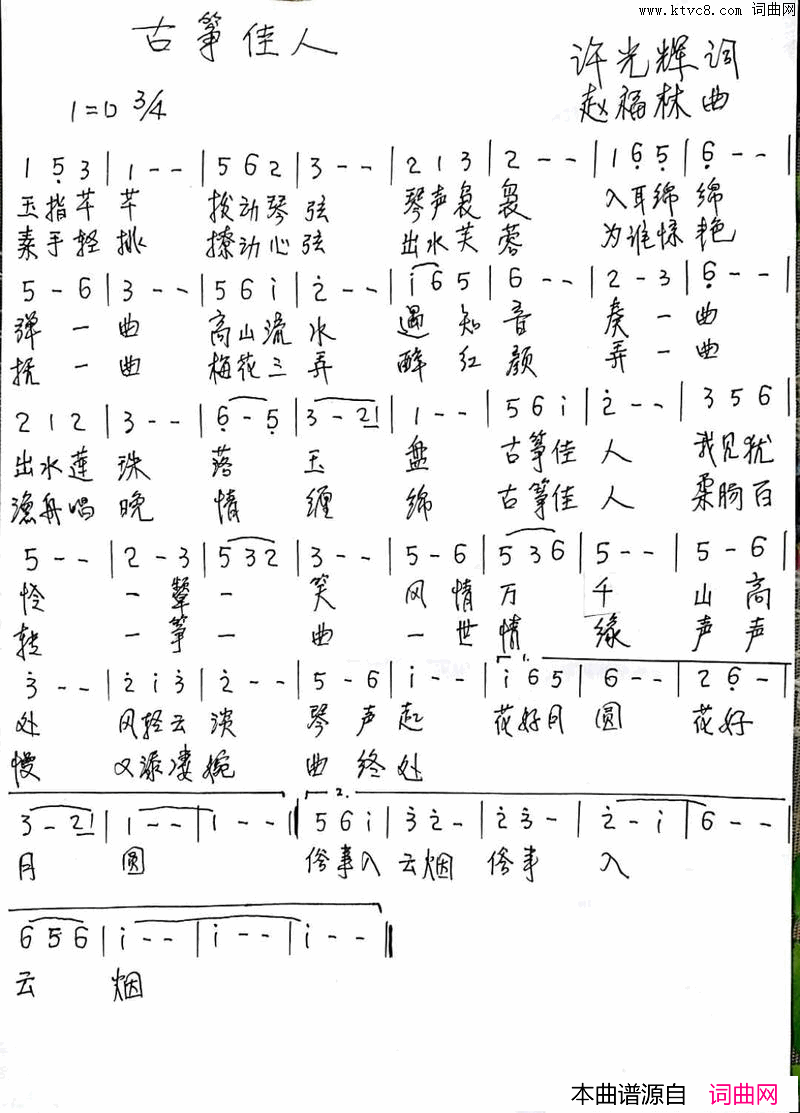 www.ktvc8.com 词曲网
古筝佳人
许光辉词
1=D 3/4
赵福林曲
1 5̣ 3 | 1 - - | 5 6 2 | 3 - - | 2 1 3 | 2 - - | 1 6̣ 5̣ | 6̣ - - |
玉指芊芊 拨动琴弦 琴声袅袅 入耳绵绵
素手轻挑 撩动心弦 出水芙蓉 为谁惊艳
5 - 6 | 3 - - | 5 6 i | 2̇ - - | i 6 5 | 6 - - | 2 - 3 | 6̣ - - |
弹一曲 高山流水 遇知音 奏一曲
抚一曲 梅花三弄 醉红颜 弄一曲
2 1 2 | 3 - - | 6̣ - 5̣ | 3 - 2 1 | 1 - - | 5 6 i | 2̇ - - | 3 5 6 |
出水莲珠落玉盘 古筝佳人 我见犹
渔舟唱晚情缠绵 古筝佳人 柔肠百
5 - - | 2 - 3 | 5 3 2 | 3 - - | 5 - 6 | 5 3 6 | 5 - - | 5 - 6 |
怜 一颦一笑 风情万千 山高
转 一筝一曲 一世情缘 声声
3̇ - - | 2̇ i 3̇ | 2̇ - - | 5 - 6 | i - - | 1. i 6 5 | 6 - - | 2 6̣ - |
处 风轻云淡 琴声起 花好月圆 花好
慢 又添凄婉 曲终处
3 - 2 1 | 1 - - | 1 - - :‖ 2. 5 6 i | 3̇ 2̇ - | 2̇ 3̇ - | 2̇ - i | 6 - - |
月圆 俗事入云烟 俗事入
6 5 6 | i - - | i - - | i - - ‖
云烟
本曲谱源自 词曲网